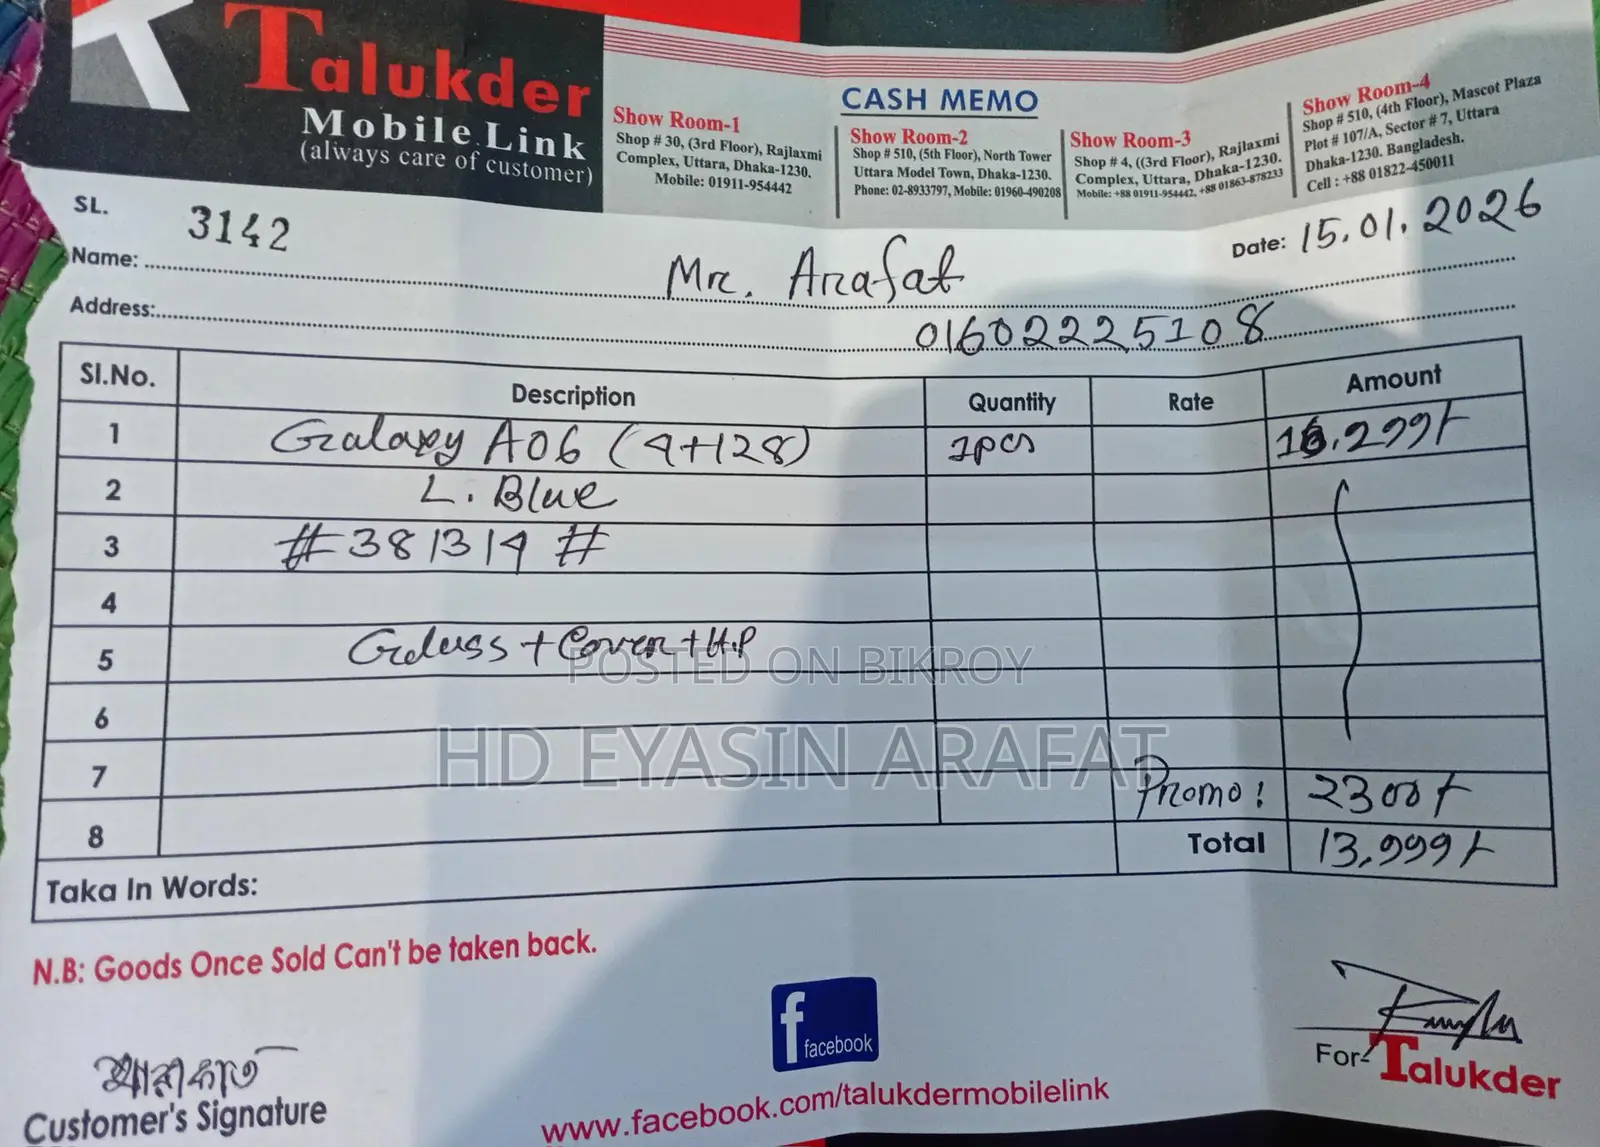 Talukder
Mobile Link
(always care of customer)
CASH MEMO
Show Room-1
Shop # 30, (3rd Floor), Rajlaxmi
Complex, Uttara, Dhaka-1230.
Mobile: 01911-954442
Show Room-2
Shop # 510, (5th Floor), North Tower
Uttara Model Town, Dhaka-1230.
Phone: 02-8933797, Mobile: 01960-490208
Show Room-3
Shop # 4, ((3rd Floor), Rajlaxmi
Complex, Uttara, Dhaka-1230.
Mobile: +88 01911-954442, +88 01863-878233
Show Room-4
Shop # 510, (4th Floor), Mascot Plaza
Plot # 107/A, Sector # 7, Uttara
Dhaka-1230. Bangladesh.
Cell : +88 01822-450011
SL. 3142
Date: 15.01.2026
Name: Mr. Arafat
Address: 01602225108
Sl.No. Description Quantity Rate Amount
1 Galaxy A06 (4+128) 1pcs 16,299/-
2 L. Blue
3 #381314#
4
5 Glass + Cover + H.P
6
7 Promo: 2300/-
8 Total 13,999/-
Taka In Words:
POSTED ON BIKROY
HD EYASIN ARAFAT
N.B: Goods Once Sold Can't be taken back.
f facebook
আরাফাত
Customer's Signature
www.facebook.com/talukdermobilelink
For- Talukder